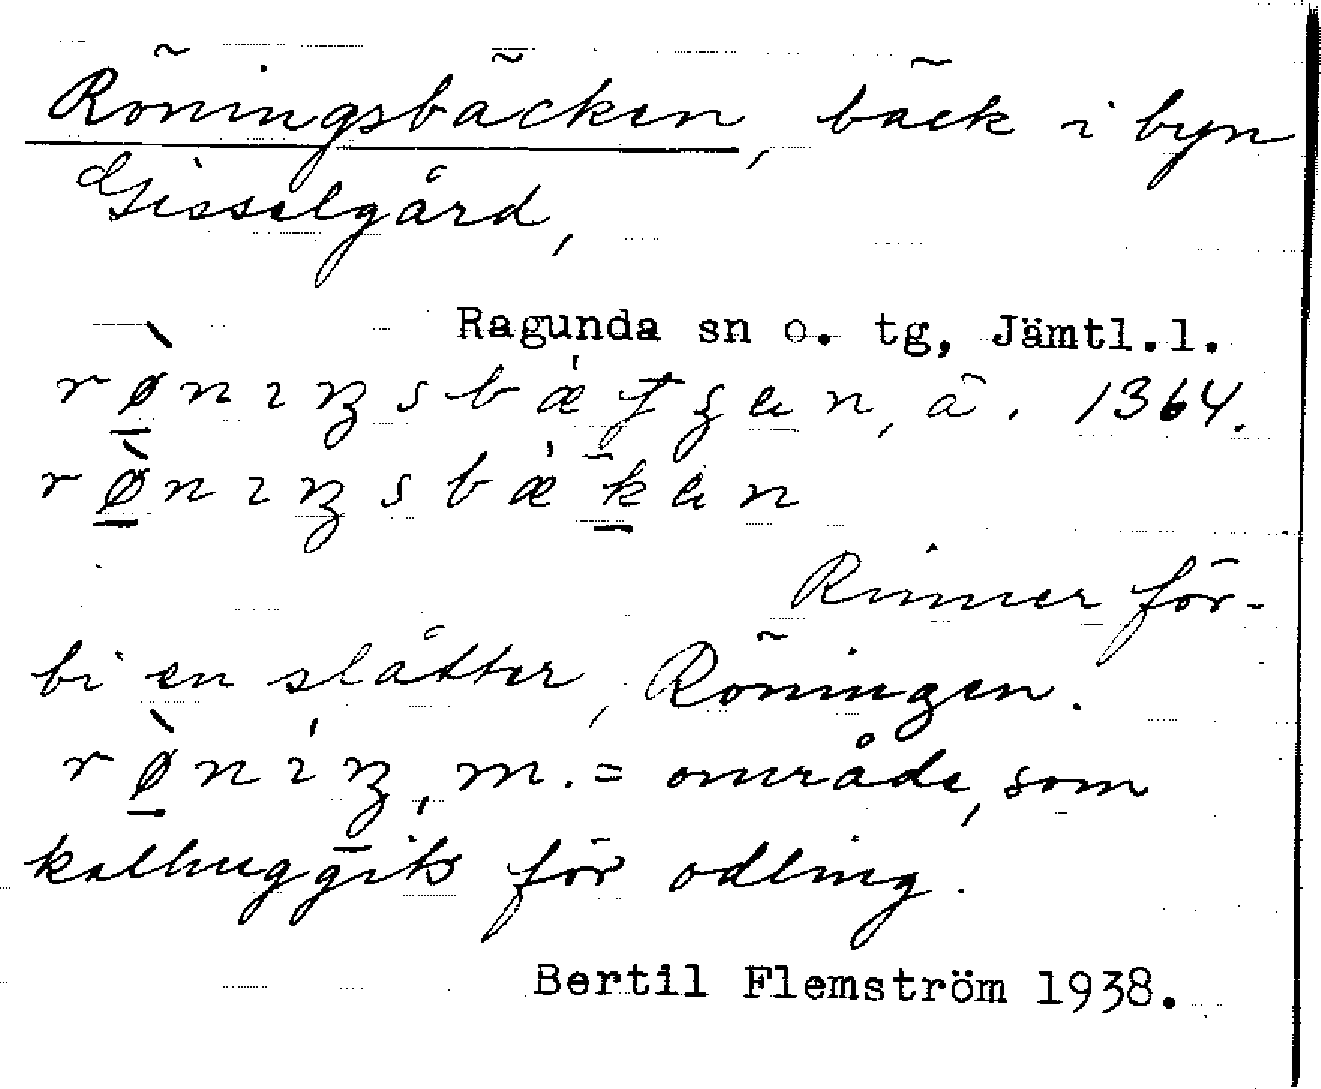 Röningsbäcken, bäck i byn
Gisselgård,
Ragunda sn o. tg, Jämtl.l.
rø̀nıŋsbæ'ʄʂɐn, ä. 1364.
rø̀nıŋsbæ'kɐn
Rinner för-
bi en slåtter, Röningen.
rø̀nı'ŋ, m. = område, som
kalhuggits för odling.
Bertil Flemström 1938.